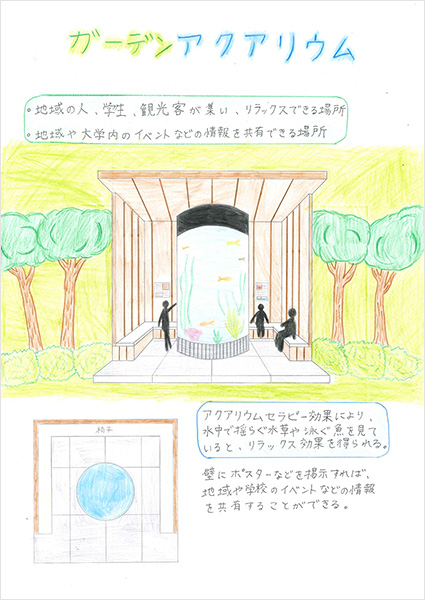 ガーデンアクアリウム
・地域の人、学生、観光客が集い、リラックスできる場所
・地域や大学内のイベントなどの情報を共有できる場所
椅子
アクアリウムセラピー効果により、
水中で揺らぐ水草や泳ぐ魚を見て
いると、リラックス効果を得られる。
壁にポスターなどを掲示すれば、
地域や学校のイベントなどの情報
を共有することができる。